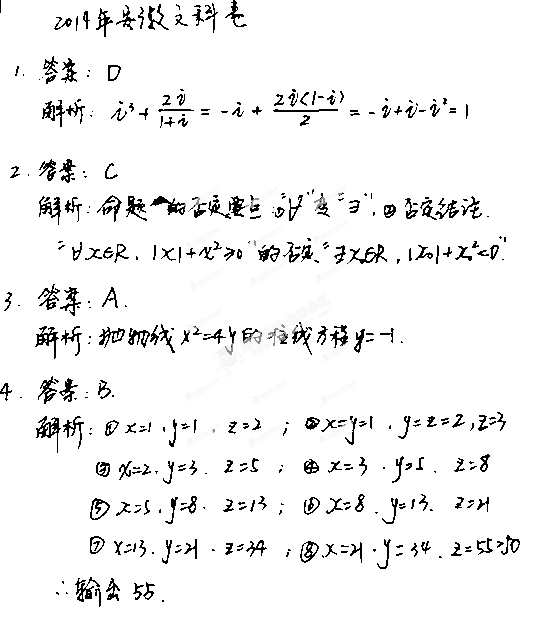 2014年安徽文科卷
1. 答案：D
解析：i³+2i/(1+i)=-i+2i(1-i)/2=-i+i-i²=1
2. 答案：C
解析：命题的否定要点①"∀"变"∃"，②否定结论.
"∀x∈R，|x|+x²≥0"的否定"∃x₀∈R，|x₀|+x₀²<0".
3. 答案：A.
解析：抛物线x²=4y的准线方程y=-1.
4. 答案：B.
解析：① x=1，y=1，z=2；② x=y=1，y=z=2，z=3
③ x=2，y=3，z=5；④ x=3，y=5，z=8
⑤ x=5，y=8，z=13；⑥ x=8，y=13，z=21
⑦ x=13，y=21，z=34；⑧ x=21，y=34，z=55>50
∴输出55.